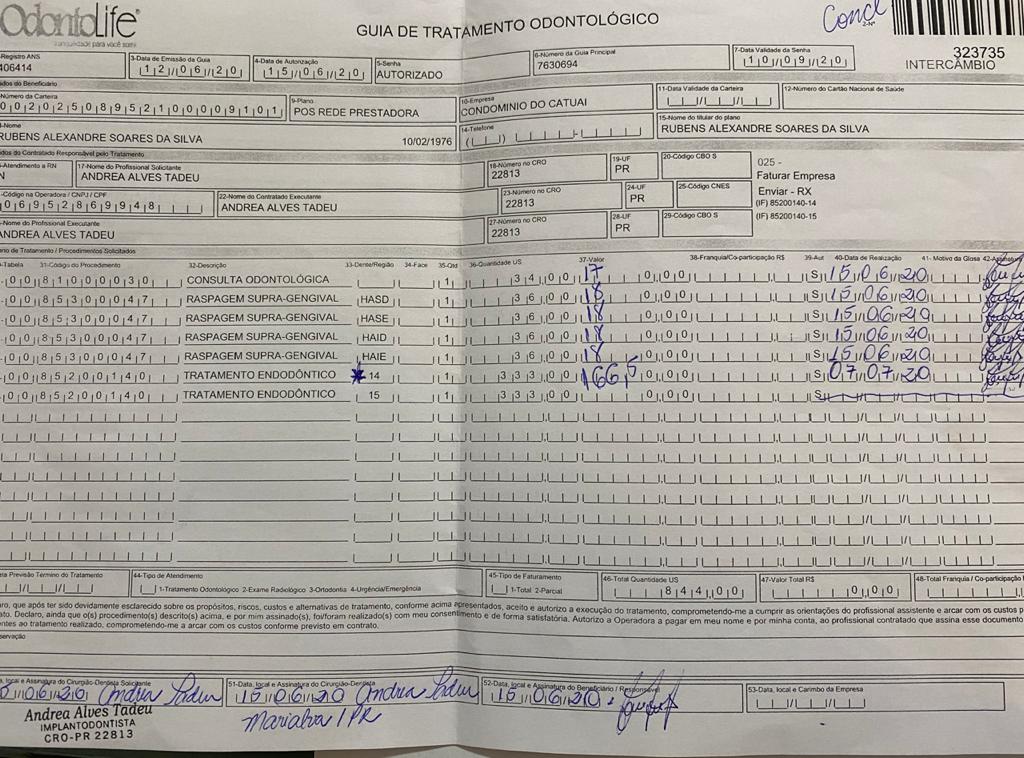 OdontoLife®
tranquilidade para você sorrir
GUIA DE TRATAMENTO ODONTOLÓGICO
Concl
2-Nº
323735
INTERCÂMBIO
Registro ANS
406414
3-Data de Emissão da Guia
12/06/20
4-Data de Autorização
15/06/20
5-Senha
AUTORIZADO
6-Número da Guia Principal
7630694
7-Data Validade da Senha
10/09/20
dos do Beneficiário
Número da Carteira
00202508952100009101
9-Plano
POS REDE PRESTADORA
10-Empresa
CONDOMINIO DO CATUAI
11-Data Validade da Carteira
12-Número do Cartão Nacional de Saúde
Nome
RUBENS ALEXANDRE SOARES DA SILVA 10/02/1976
14-Telefone
15-Nome do titular do plano
RUBENS ALEXANDRE SOARES DA SILVA
dos do Contratado Responsável pelo Tratamento
Atendimento a RN
N
17-Nome do Profissional Solicitante
ANDREA ALVES TADEU
18-Número no CRO
22813
19-UF
PR
20-Código CBO S
025 -
Faturar Empresa
Enviar - RX
(IF) 85200140-14
(IF) 85200140-15
Código na Operadora / CNPJ / CPF
06952869948
22-Nome do Contratado Executante
ANDREA ALVES TADEU
23-Número no CRO
22813
24-UF
PR
25-Código CNES
Nome do Profissional Executante
ANDREA ALVES TADEU
27-Número no CRO
22813
28-UF
PR
29-Código CBO S
Plano de Tratamento / Procedimentos Solicitados
Tabela 31-Código do Procedimento 32-Descrição 33-Dente/Região 34-Face 35-Qtd 36-Quantidade US 37-Valor 38-Franquia/Co-participação R$ 39-Aut 40-Data de Realização 41- Motivo da Glosa 42-Assinatura
00 81000030 CONSULTA ODONTOLÓGICA 1 34,00 17 0,00 S 15/06/20
00 85300047 RASPAGEM SUPRA-GENGIVAL HASD 1 36,00 18 0,00 S 15/06/20
00 85300047 RASPAGEM SUPRA-GENGIVAL HASE 1 36,00 18 0,00 S 15/06/20
00 85300047 RASPAGEM SUPRA-GENGIVAL HAID 1 36,00 18 0,00 S 15/06/20
00 85300047 RASPAGEM SUPRA-GENGIVAL HAIE 1 36,00 18 0,00 S 15/06/20
00 85200140 TRATAMENTO ENDODÔNTICO 14 1 333,00 166,5 0,00 S 07/07/20
00 85200140 TRATAMENTO ENDODÔNTICO 15 1 333,00 0,00 S
Previsão Término do Tratamento
44-Tipo de Atendimento
1-Tratamento Odontológico 2-Exame Radiológico 3-Ortodontia 4-Urgência/Emergência
45-Tipo de Faturamento
1-Total 2-Parcial
46-Total Quantidade US
844,00
47-Valor Total R$
0,00
48-Total Franquia / Co-participação
que após ter sido devidamente esclarecido sobre os propósitos, riscos, custos e alternativas de tratamento, conforme acima apresentados, aceito e autorizo a execução do tratamento, comprometendo-me a cumprir as orientações do profissional assistente e arcar com os custos
Declaro, ainda que o(s) procedimento(s) descrito(s) acima, e por mim assinado(s), foi/foram realizado(s) com meu consentimento e de forma satisfatória. Autorizo a Operadora a pagar em meu nome e por minha conta, ao profissional contratado que assina esse documento
ao tratamento realizado, comprometendo-me a arcar com os custos conforme previsto em contrato.
servação
local e Assinatura do Cirurgião-Dentista Solicitante
15/06/20 Andrea Tadeu
51-Data, local e Assinatura do Cirurgião-Dentista
15/06/20 Andrea Tadeu
Marialva / PR
52-Data, local e Assinatura do Beneficiário / Responsável
15/06/20
53-Data, local e Carimbo da Empresa
Andrea Alves Tadeu
IMPLANTODONTISTA
CRO-PR 22813